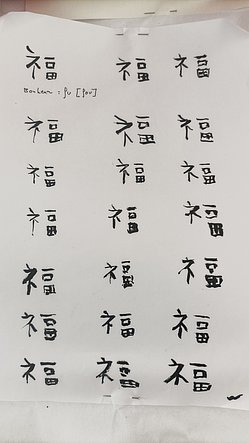 福 福 福
Bonheur : fu [fou]
福 福 福
福 福 福
福 福 福
福 福 福
福 福 福
福 福 福